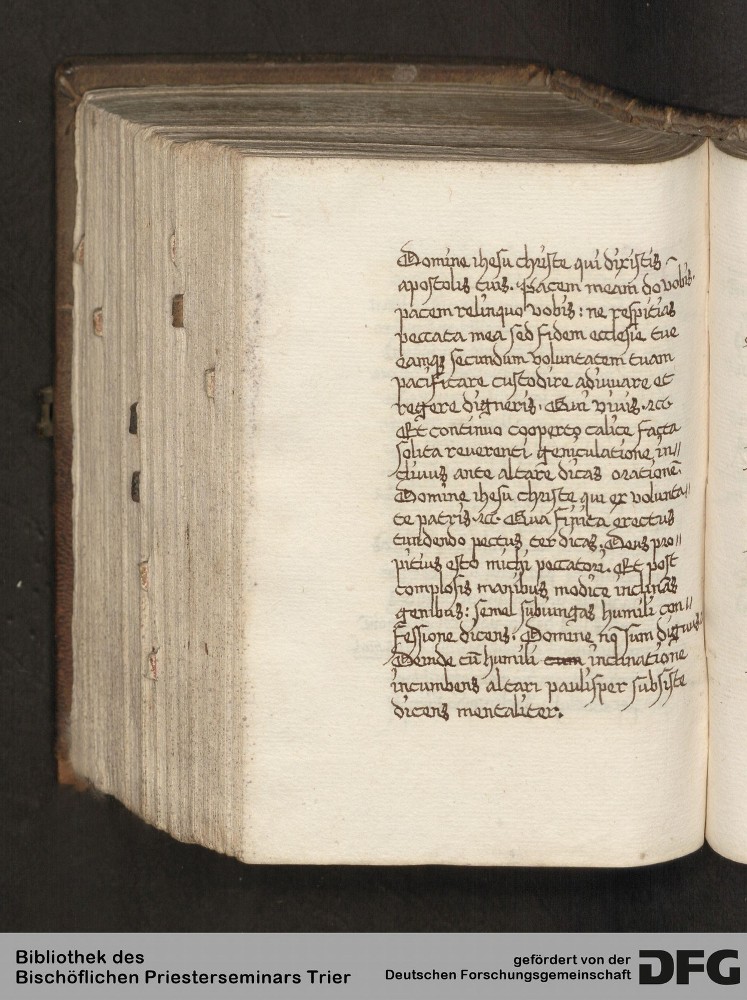 Domine ihesu christe qui dixistis
apostolis tuis. Pacem meam do vobis.
pacem relinquo vobis: ne respitias
peccata mea sed fidem ecclesie tue
eamqz secundum voluntatem tuam
pacificare custodire adiuuare et
regere digneris. Qui viuis .rcc.
Et continuo cooperto calice facta
solita reuerenti geniculatione in//
cliuus ante altare dicas orationē.
Domine ihesu christe qui ex volunta//
te patris .rcc. Qua finita erectus
tundendo pectus ter dicas. Deus pro//
pitius esto michi peccatori. Et post
complosis manibus modice inclinās
genibus: semel subiungas humili con//
fessione dicens. Domine nō sum dignus
Deinde cū humili inclinatione
incumbens altari paulisper subsiste
dicens mentaliter.
Bibliothek des
Bischöflichen Priesterseminars Trier
gefördert von der
Deutschen Forschungsgemeinschaft
DFG